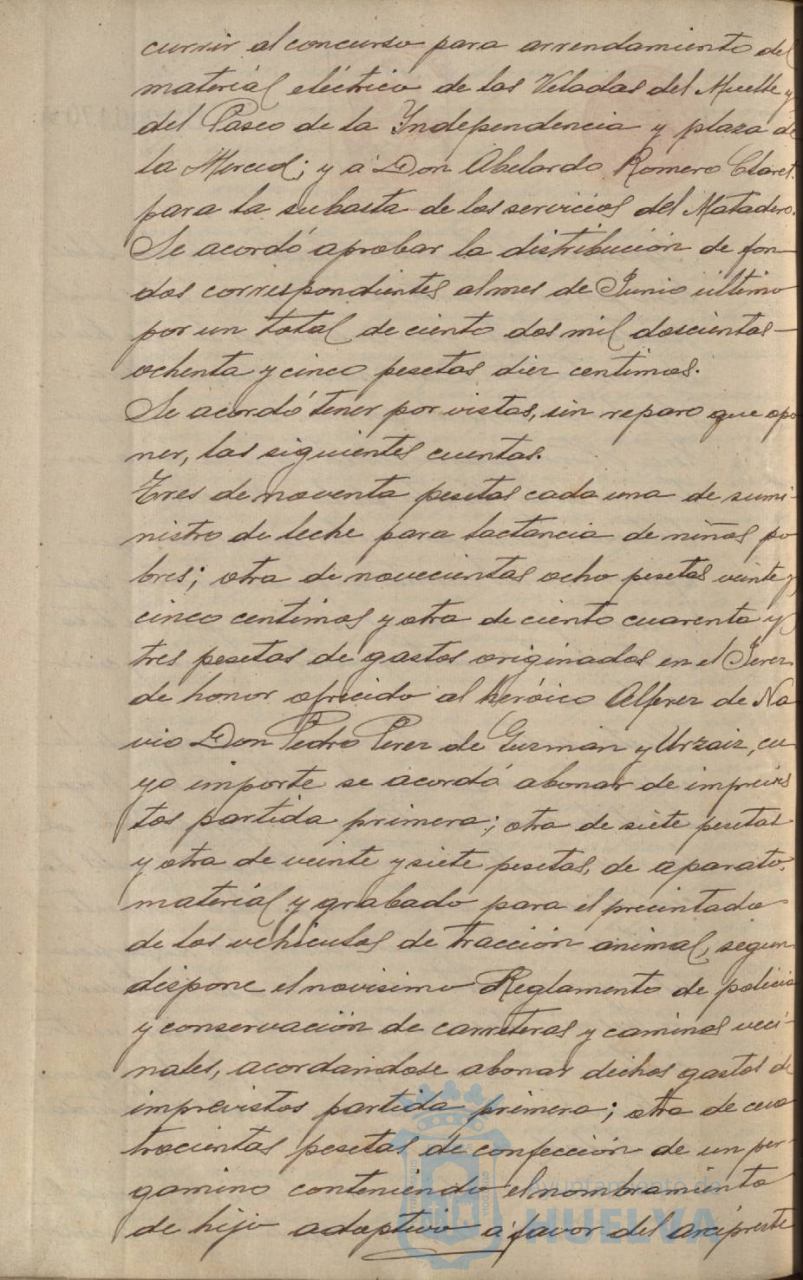 currir al concurso para arrendamiento del
material eléctrico de las Veladas del Muelle y
del Paseo de la Independencia y plaza de
la Merced; y a Don Abelardo Romero Claret
para la subasta de los servicios del Matadero.
Se acordó aprobar la distribución de fon-
dos correspondientes al mes de Junio último
por un total de ciento dos mil doscientas
ochenta y cinco pesetas diez centimos.
Se acordó tener por vistas, sin reparo que opo
ner, las siguientes cuentas.
Tres de noventa pesetas cada una de sumi-
nistro de leche para lactancia de niños po
bres; otra de novecientas ocho pesetas veinte y
cinco centimos y otra de ciento cuarenta y
tres pesetas de gastos originados en el Jerez
de honor ofrecido al heróico Alferez de Na
vio Don Pedro Perez de Guzmán y Urzaiz, cu
yo importe se acordó abonar de imprevis
tos partida primera; otra de siete pesetas
y otra de veinte y siete pesetas, de aparato,
material y grabado para el precintado
de los vehiculos de tracción animal, segun
dispone el novisimo Reglamento de policia
y conservación de carreteras y caminos veci-
nales, acordandose abonar dichos gastos de
imprevistos partida primera; otra de cua
trocientas pesetas de confección de un per-
gamino conteniendo el nombramiento
de hijo adoptivo a favor del arcipreste
Ayuntamiento de
HUELVA